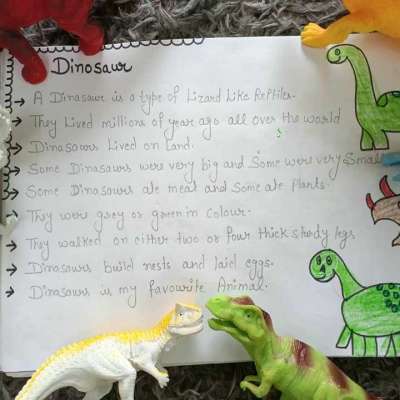 Dinosaur
→ A Dinosaur is a type of Lizard Like Reptiles.
→ They Lived millions of year ago all over the world
→ Dinosaurs Lived on Land.
→ Some Dinosaurs were very big and Some were very Small
→ Some Dinosaurs ate meat and Some ate Plants.
→ They were grey or green in colour.
→ They walked on either two or four thick study legs
→ Dinosaurs build nests and laid eggs.
→ Dinosaurs is my favourite Animal.